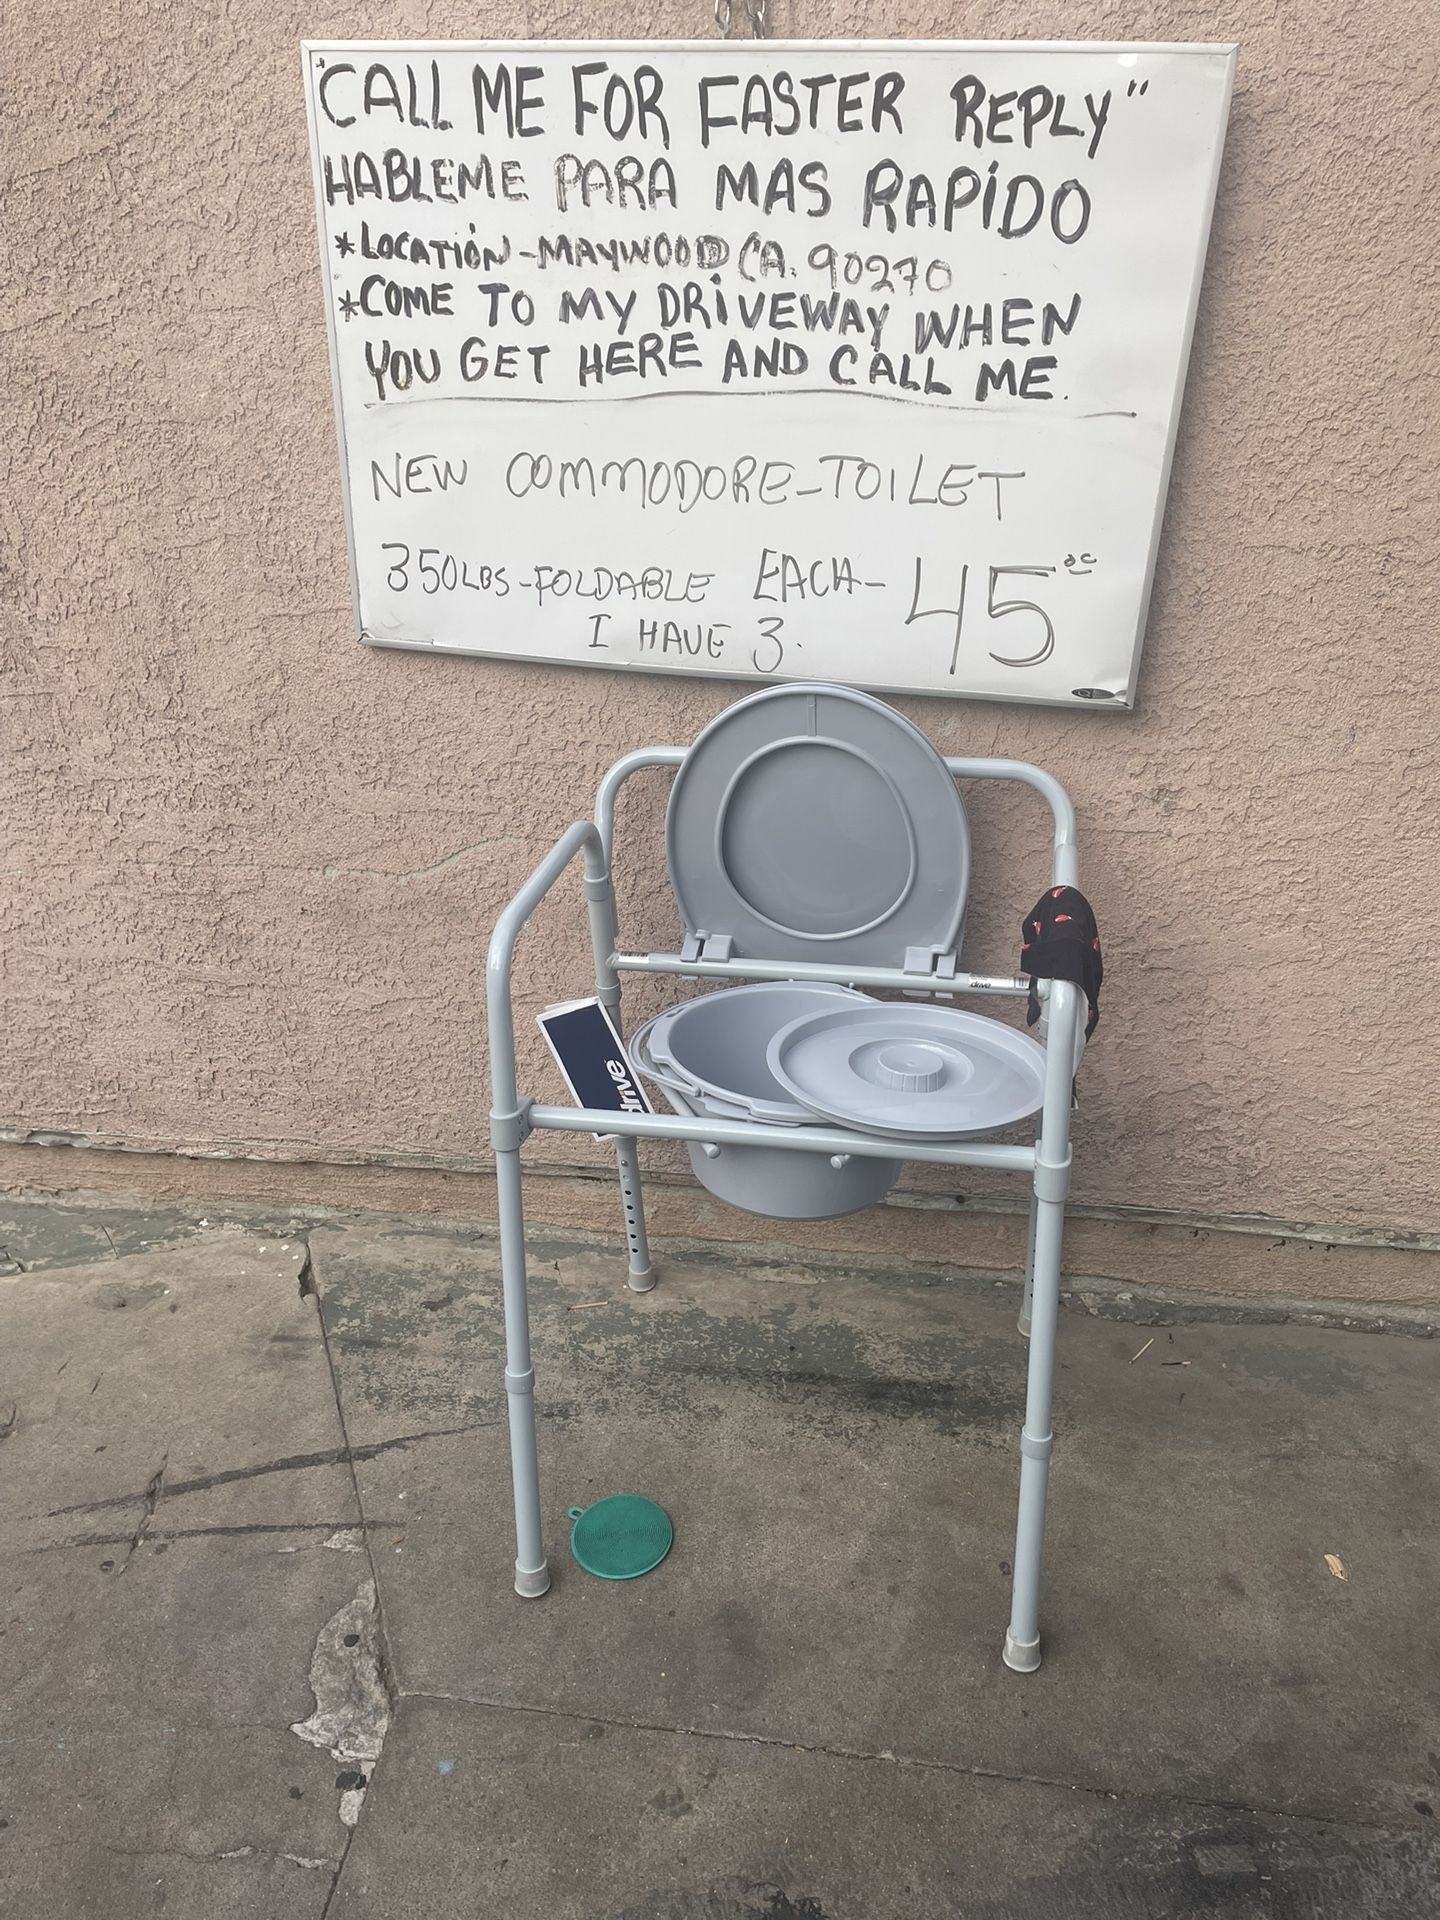 "CALL ME FOR FASTER REPLY"
HABLEME PARA MAS RAPÍDO
*LOCATIÓN-MAYWOOD CA. 90270
*COME TO MY DRIVEWAY WHEN
YOU GET HERE AND CALL ME.
NEW COMMODORE-TOILET
350LBS-FOLDABLE EACH- 45
I HAVE 3.
drive
drive